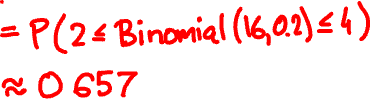 = P(2 ≤ Binomial(16,0.2) ≤ 4)
≈ 0 657